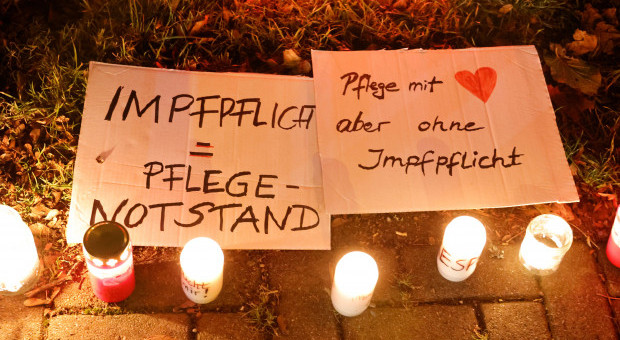 IMPFPFLICH
=
PFLEGE-
NOTSTAND
Pflege mit
aber ohne
Impfpflicht
ESF